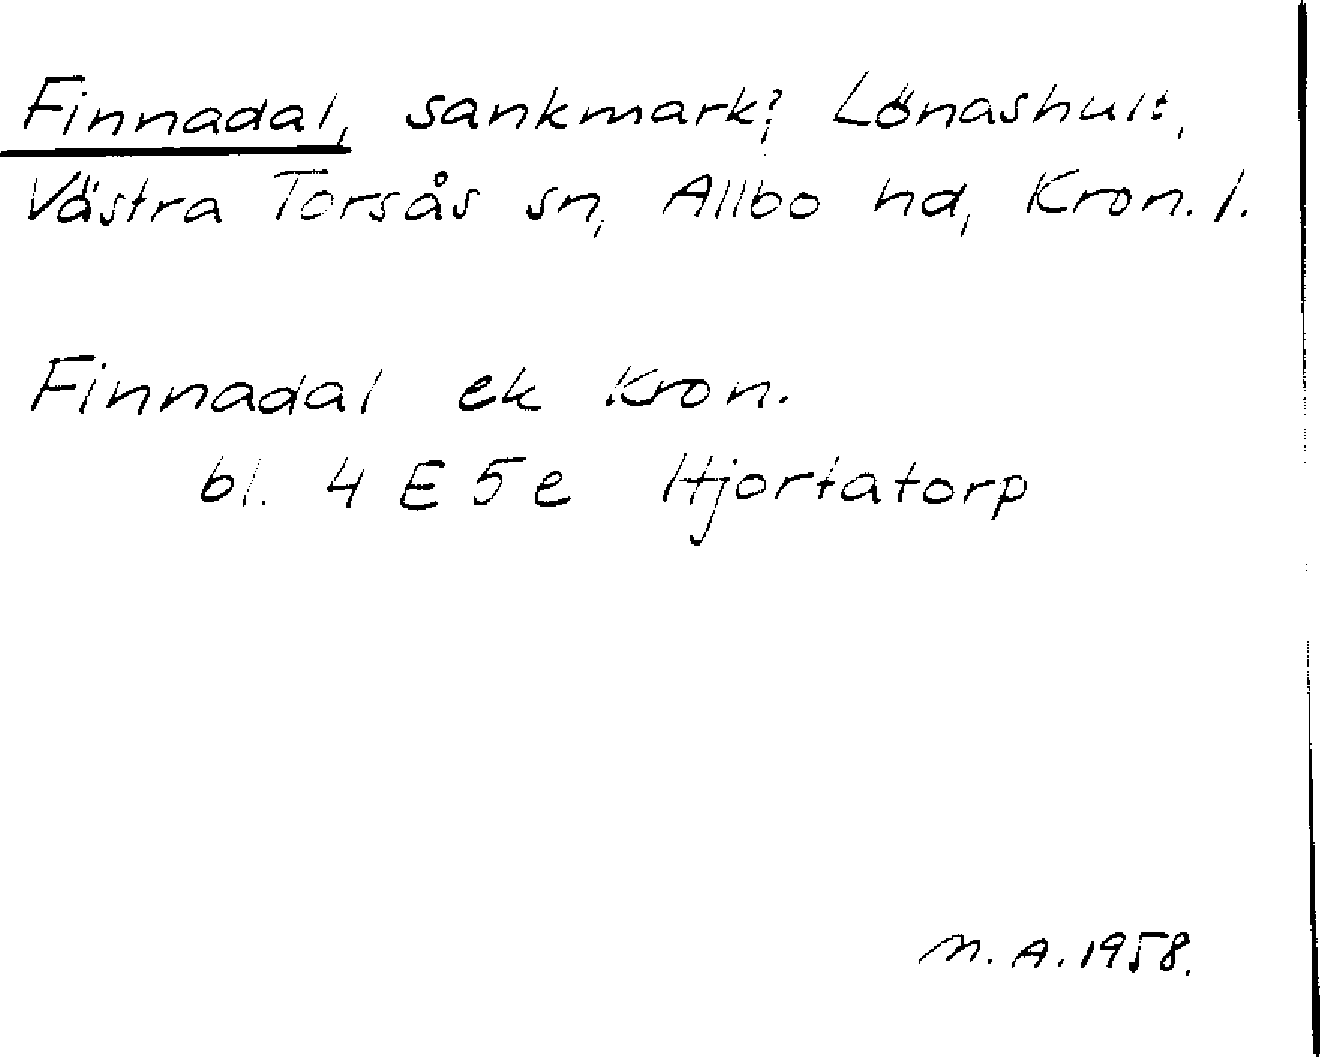 Finnadal, sankmark?, Lönashult,
Västra Torsås sn, Allbo hd, Kron. l.
Finnadal ek Kron.
bl. 4 E 5 e Hjortatorp
M. A. 1958.